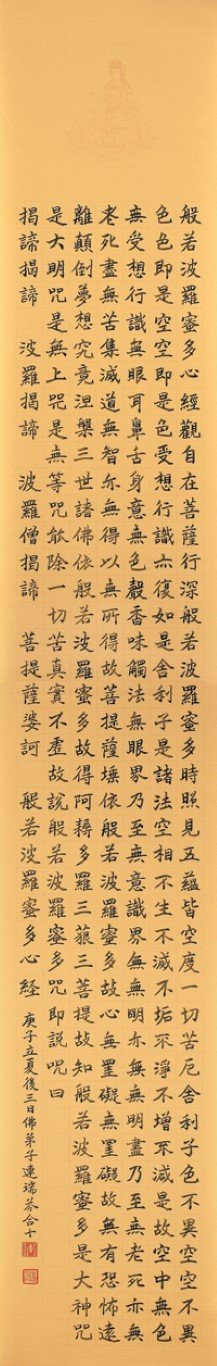 般若波羅蜜多心經觀自在菩薩行深般若波羅蜜多時照見五蘊皆空度一切苦厄舍利子色不異空空不異
色色即是空空即是色受想行識亦復如是舍利子是諸法空相不生不滅不垢不淨不增不減是故空中無色
無受想行識無眼耳鼻舌身意無色聲香味觸法無眼界乃至無意識界無無明亦無無明盡乃至無老死亦無
老死盡無苦集滅道無智亦無得以無所得故菩提薩埵依般若波羅蜜多故心無罣礙無罣礙故無有恐怖遠
離顛倒夢想究竟涅槃三世諸佛依般若波羅蜜多故得阿耨多羅三藐三菩提故知般若波羅蜜多是大神咒
是大明咒是無上咒是無等咒能除一切苦真實不虛故說般若波羅蜜多咒即說咒曰
揭諦揭諦 波羅揭諦 波羅僧揭諦 菩提薩婆訶 般若波羅蜜多心經 庚子立夏後三日佛弟子連瑞芬合十